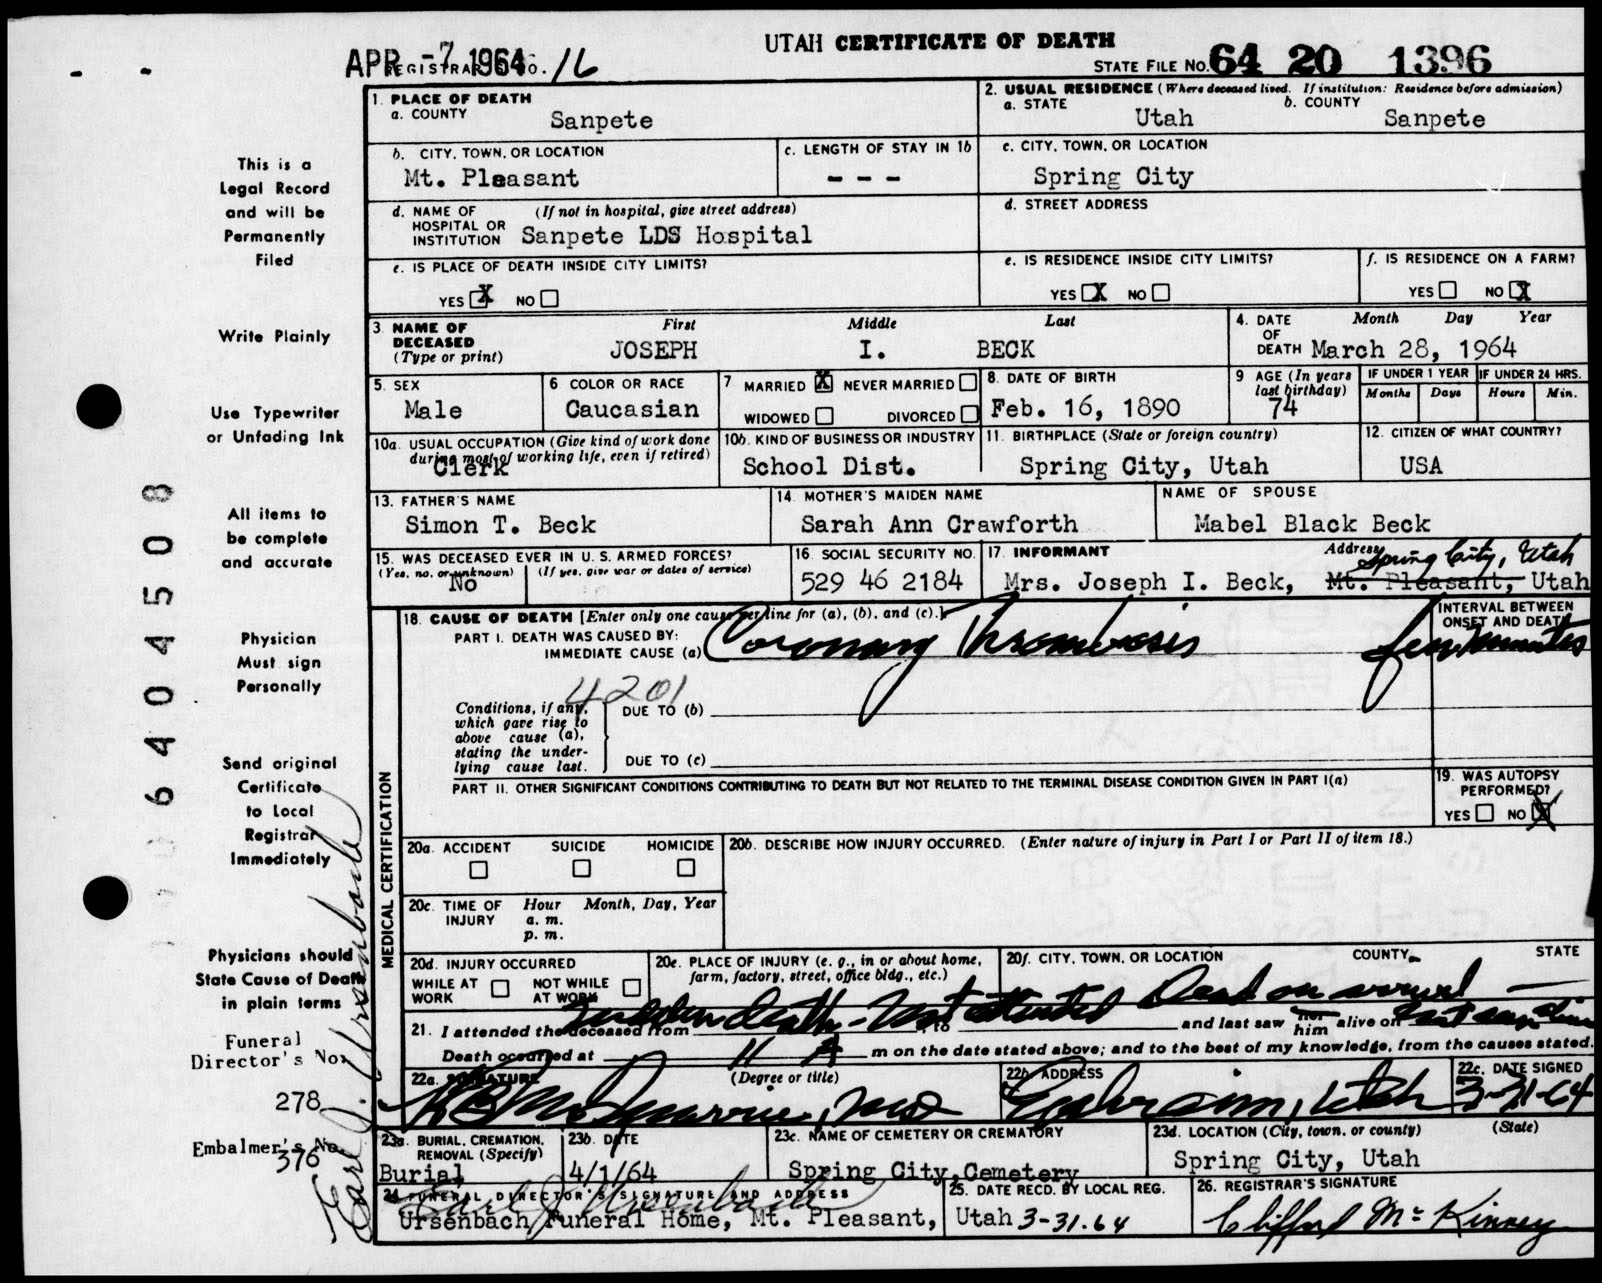 UTAH CERTIFICATE OF DEATH
APR -7 1964
REGISTRAR'S NO. 16
STATE FILE NO. 64 20 1396
This is a
Legal Record
and will be
Permanently
Filed
Write Plainly
Use Typewriter
or Unfading Ink
All items to
be complete
and accurate
Physician
Must sign
Personally
Send original
Certificate
to Local
Registrar
Immediately
Physicians should
State Cause of Death
in plain terms
Funeral
Director's No.
278
Embalmer's No.
376
Earl J. Ursenbach
06404508
1. PLACE OF DEATH
a. COUNTY Sanpete
2. USUAL RESIDENCE (Where deceased lived. If institution: Residence before admission)
a. STATE Utah b. COUNTY Sanpete
b. CITY, TOWN, OR LOCATION
Mt. Pleasant
c. LENGTH OF STAY IN 1b
- - -
c. CITY, TOWN, OR LOCATION
Spring City
d. NAME OF HOSPITAL OR INSTITUTION (If not in hospital, give street address)
Sanpete LDS Hospital
d. STREET ADDRESS
e. IS PLACE OF DEATH INSIDE CITY LIMITS?
YES X NO
e. IS RESIDENCE INSIDE CITY LIMITS?
YES X NO
f. IS RESIDENCE ON A FARM?
YES NO X
3. NAME OF DECEASED (Type or print)
First Middle Last
JOSEPH I. BECK
4. DATE OF DEATH Month Day Year
March 28, 1964
5. SEX
Male
6 COLOR OR RACE
Caucasian
7 MARRIED X NEVER MARRIED
WIDOWED DIVORCED
8. DATE OF BIRTH
Feb. 16, 1890
9 AGE (In years last birthday)
74
IF UNDER 1 YEAR
Months Days
IF UNDER 24 HRS.
Hours Min.
10a. USUAL OCCUPATION (Give kind of work done during most of working life, even if retired)
Clerk
10b. KIND OF BUSINESS OR INDUSTRY
School Dist.
11. BIRTHPLACE (State or foreign country)
Spring City, Utah
12. CITIZEN OF WHAT COUNTRY?
USA
13. FATHER'S NAME
Simon T. Beck
14. MOTHER'S MAIDEN NAME
Sarah Ann Crawforth
NAME OF SPOUSE
Mabel Black Beck
15. WAS DECEASED EVER IN U. S. ARMED FORCES?
(Yes, no, or unknown) (If yes, give war or dates of service)
No
16. SOCIAL SECURITY NO.
529 46 2184
17. INFORMANT Address
Spring City, Utah
Mrs. Joseph I. Beck, Mt. Pleasant, Utah
18. CAUSE OF DEATH [Enter only one cause per line for (a), (b), and (c).]
PART I. DEATH WAS CAUSED BY:
IMMEDIATE CAUSE (a) Coronary Thrombosis
INTERVAL BETWEEN ONSET AND DEATH
few minutes
4201
Conditions, if any, which gave rise to above cause (a), stating the underlying cause last.
DUE TO (b)
DUE TO (c)
PART II. OTHER SIGNIFICANT CONDITIONS CONTRIBUTING TO DEATH BUT NOT RELATED TO THE TERMINAL DISEASE CONDITION GIVEN IN PART I(a)
19. WAS AUTOPSY PERFORMED?
YES NO X
MEDICAL CERTIFICATION
20a. ACCIDENT SUICIDE HOMICIDE
20b. DESCRIBE HOW INJURY OCCURRED. (Enter nature of injury in Part I or Part II of item 18.)
20c. TIME OF INJURY Hour Month, Day, Year
a. m.
p. m.
20d. INJURY OCCURRED
WHILE AT WORK NOT WHILE AT WORK
20e. PLACE OF INJURY (e. g., in or about home, farm, factory, street, office bldg., etc.)
20f. CITY, TOWN, OR LOCATION COUNTY STATE
Sudden death - Not attended Dead on arrival
21. I attended the deceased from to and last saw him alive on
Death occurred at 11 A m on the date stated above; and to the best of my knowledge, from the causes stated.
22a. SIGNATURE (Degree or title)
22b. ADDRESS
Ephraim, Utah
22c. DATE SIGNED
3-31-64
23a. BURIAL, CREMATION, REMOVAL (Specify)
Burial
23b. DATE
4/1/64
23c. NAME OF CEMETERY OR CREMATORY
Spring City Cemetery
23d. LOCATION (City, town, or county) (State)
Spring City, Utah
24. FUNERAL DIRECTOR'S SIGNATURE AND ADDRESS
Earl J Ursenbach
Ursenbach Funeral Home, Mt. Pleasant, Utah
25. DATE RECD. BY LOCAL REG.
3-31-64
26. REGISTRAR'S SIGNATURE
Clifford McKinney